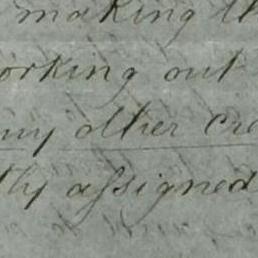 making th
orking out
ny other cre
tly assigned